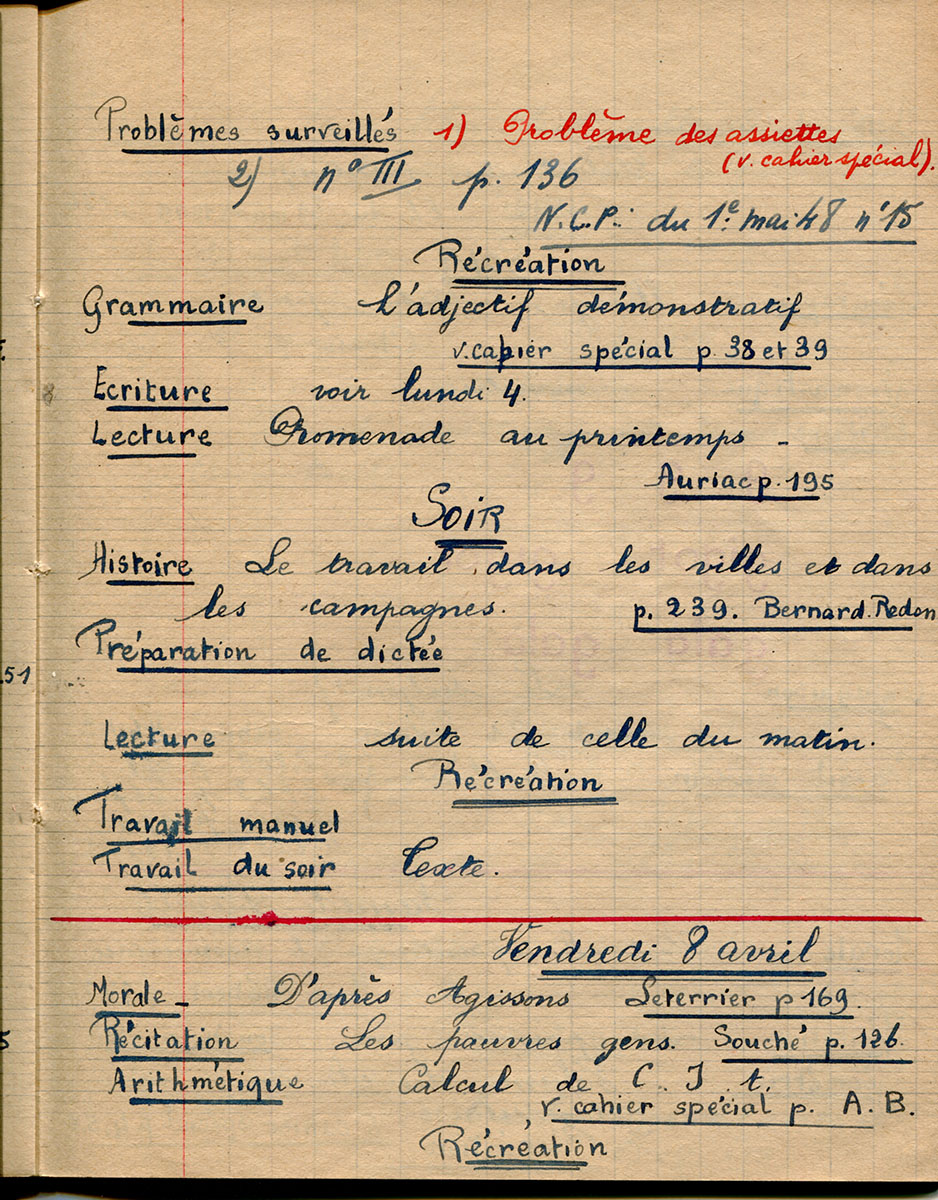 Problèmes surveillés 1) Problème des assiettes
(v. cahier spécial).
2) n° III p. 136
N.C.P.: du 1e mai 48 n° 15
Récréation
Grammaire L'adjectif démonstratif
v. cahier spécial p. 38 et 39
Ecriture voir lundi 4.
Lecture Promenade au printemps -
Auriac p. 195
SOIR
Histoire Le travail dans les villes et dans
les campagnes. p. 239. Bernard. Redon
Préparation de dictée
51
Lecture suite de celle du matin.
Récréation
Travail manuel
Travail du soir Texte.
Vendredi 8 avril
Morale - D'après Agissons Leterrier p 169.
Récitation Les pauvres gens. Souché p. 126.
Arithmétique Calcul de C. I t.
v. cahier spécial p. A. B.
Récréation